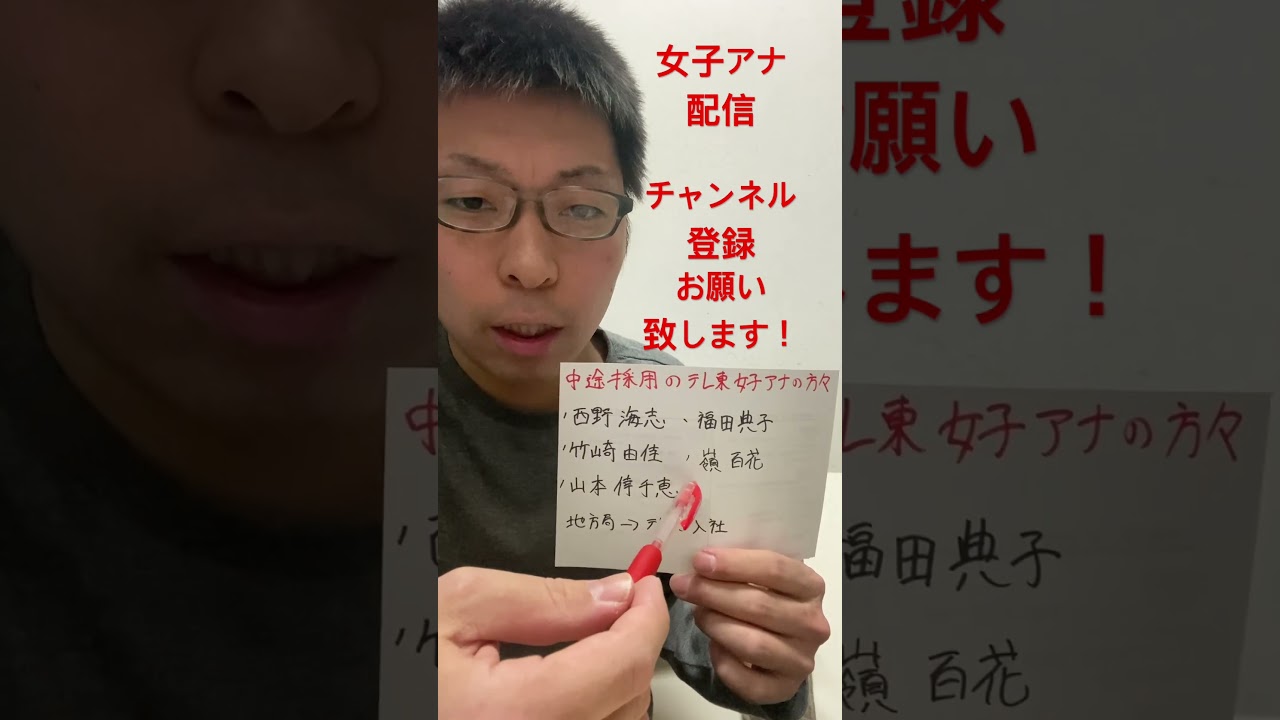 女子アナ
配信
チャンネル
登録
お願い
致します！
中途採用のテレ東女子アナの方々
西野海志、福田典子
竹崎由佳、嶺百花
山本倖千恵
地方局→テ 入社
登録
お願い
します！
中 レ東女子アナの方々
福田典子
嶺百花